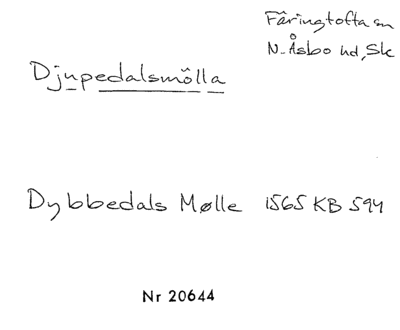 Färingtofta sn
N. Åsbo hd, Sk
Djupedalsmölla
Dybbedals Mølle 1565 KB 594
Nr 20644